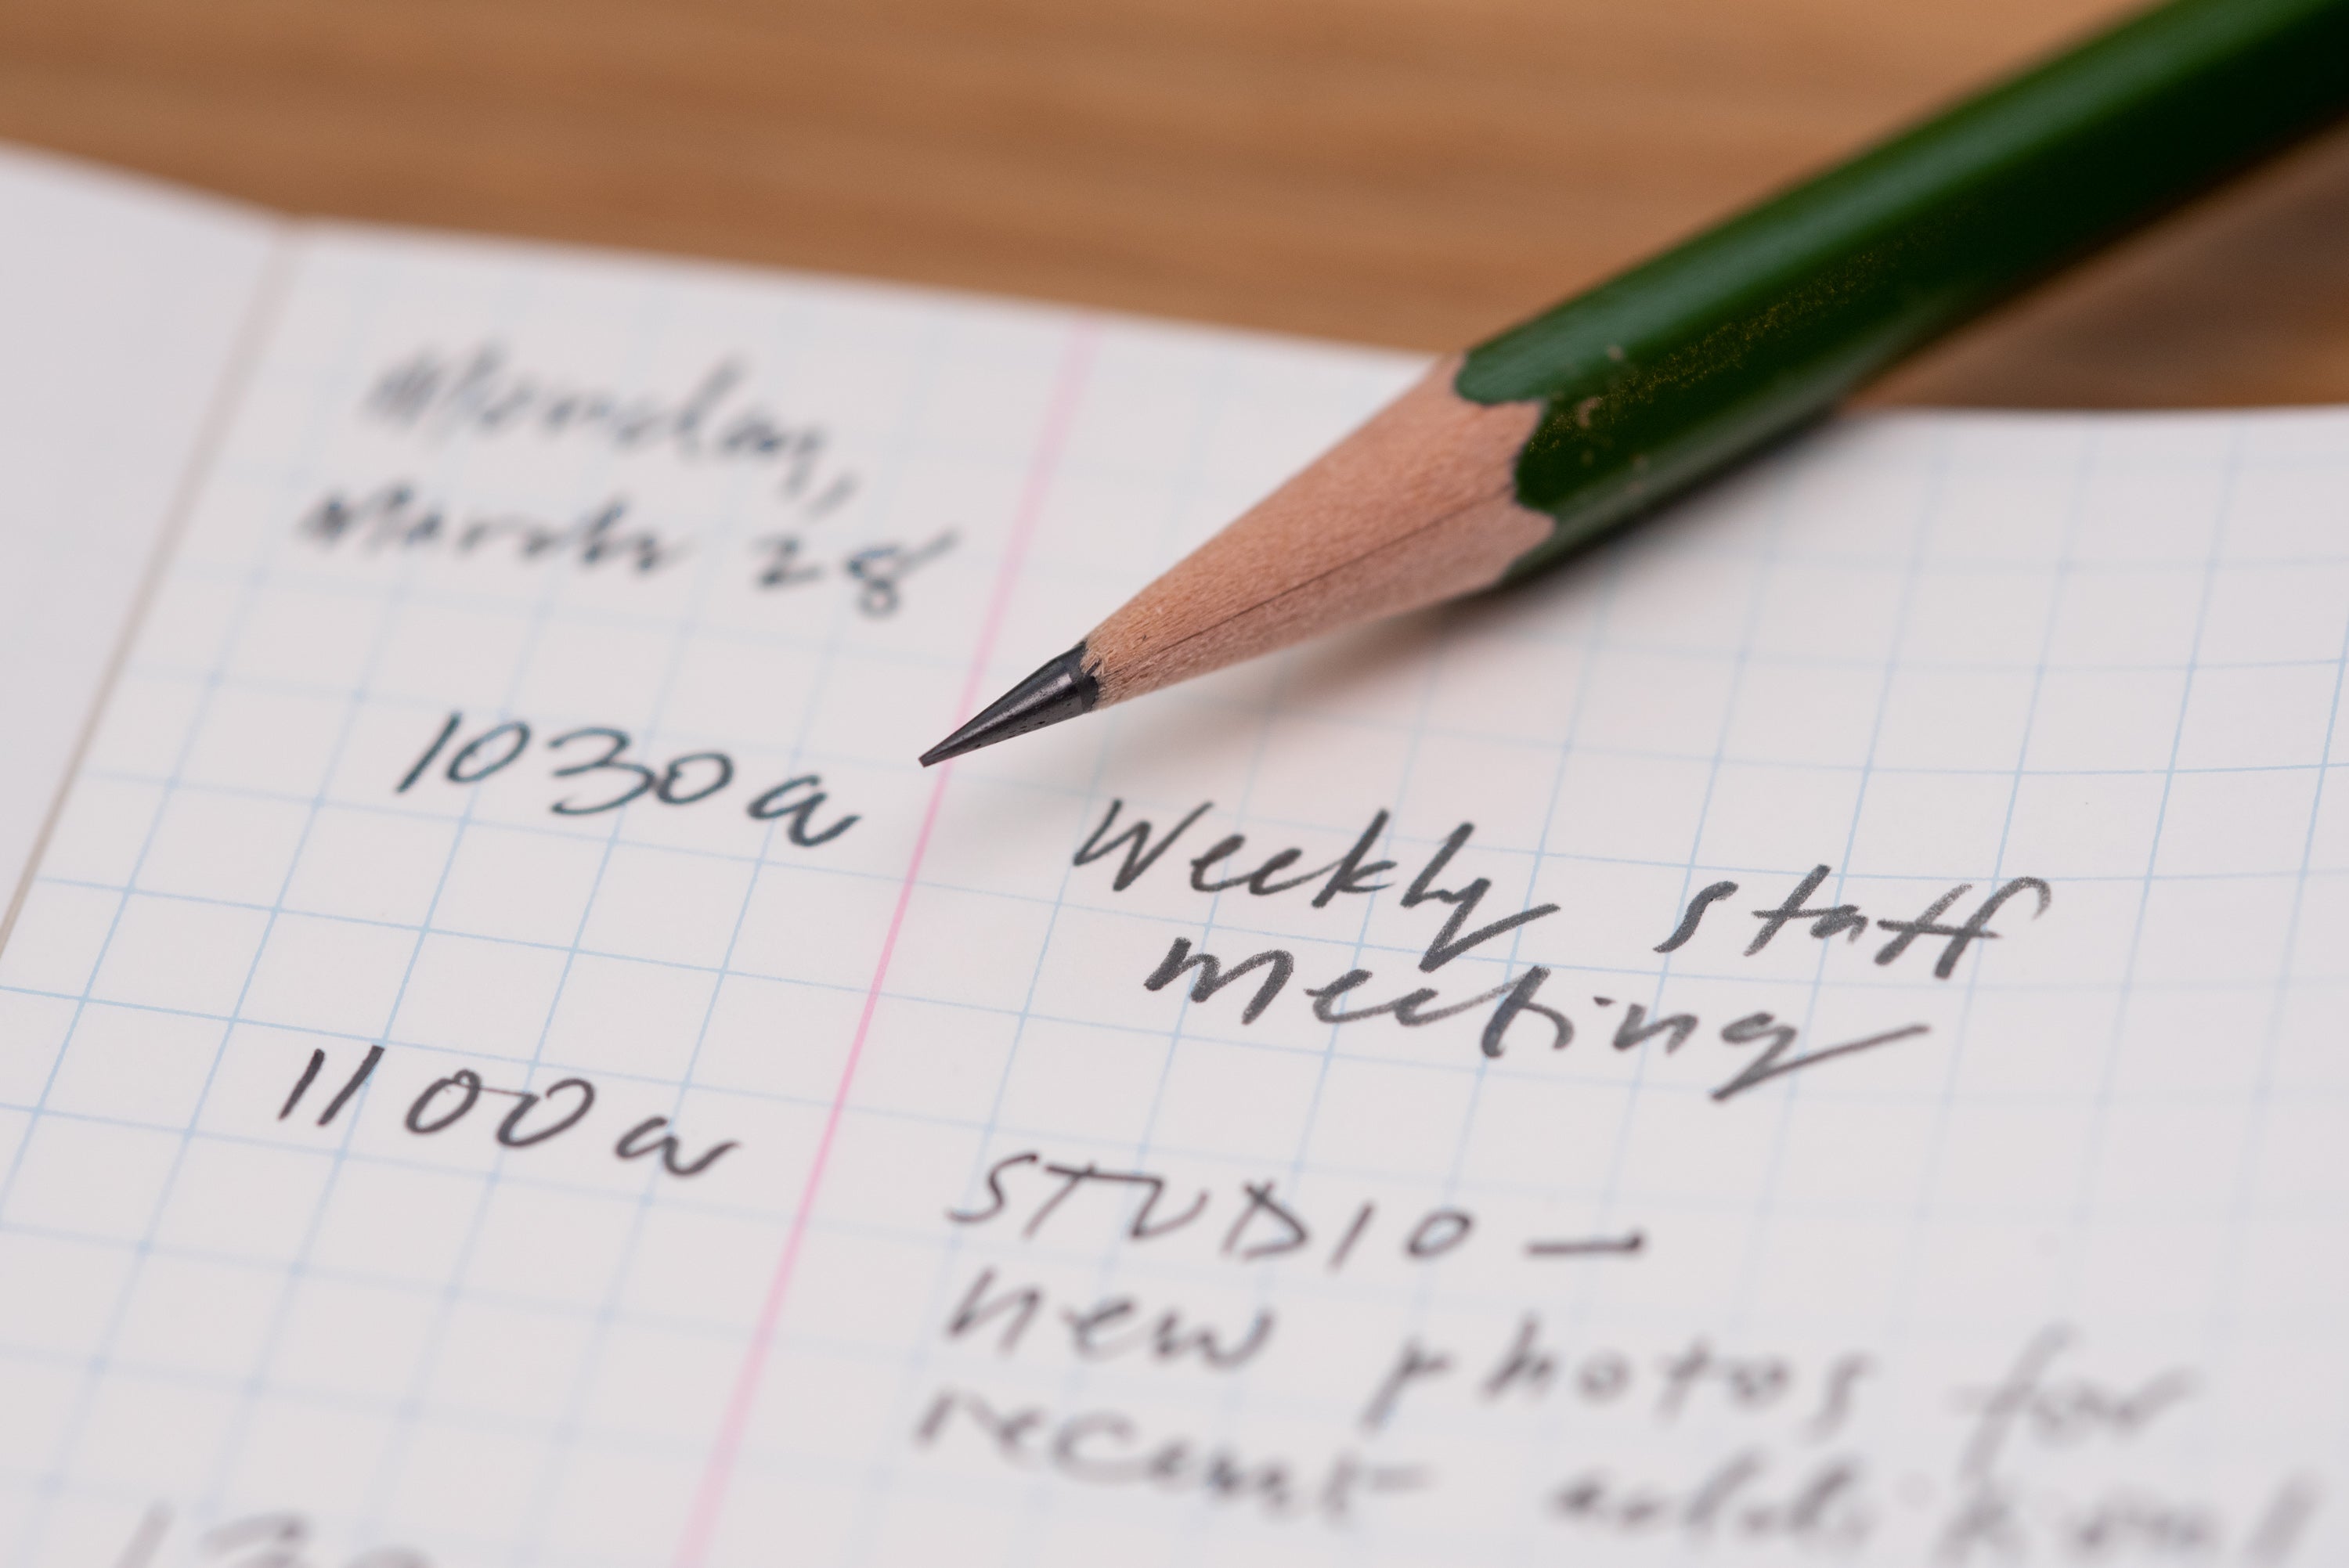 Monday,
March 28
1030a
Weekly staff
meeting
1100a
STUDIO —
new photos for
recent additional